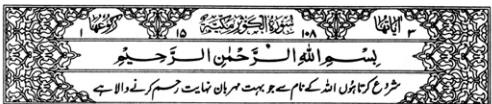 اٰیَاتُهَا ٣ ١٠٨ سُوْرَةُ الْكَوْثَرِ مَكِّيَّةٌ ١٥ رُكُوْعُهَا ١
بِسْمِ اللهِ الرَّحْمٰنِ الرَّحِيْمِ
شروع کرتا ہوں اللہ کے نام سے جو بہت مہربان نہایت رحم کرنے والا ہے